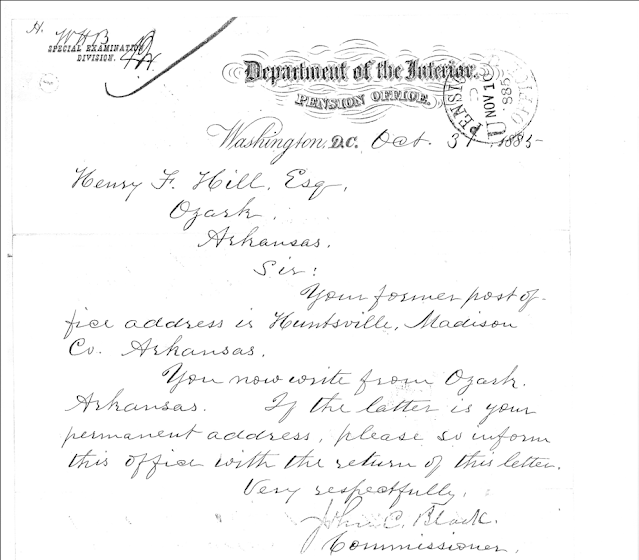 H.
W H B
SPECIAL EXAMINATION
DIVISION.
Department of the Interior.
PENSION OFFICE.
PENSION
NOV 10
Washington, D.C. Oct. 31, 1885
Henry F. Hill, Esq.
Ozark.
Arkansas.
Sir:
Your former post of-
fice address is Huntsville, Madison
Co. Arkansas.
You now write from Ozark.
Arkansas. If the latter is your
permanent address, please so inform
this office with the return of this letter.
Very respectfully,
John C. Black.
Commissioner.